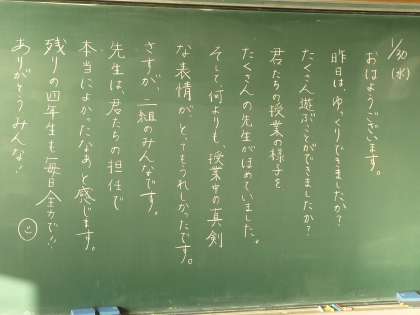 1/30(水)
おはようございます。
昨日は、ゆっくりできましたか?
たくさん遊ぶことができましたか?
君たちの授業の様子を
たくさんの先生がほめていました。
そして何よりも、授業中の真剣
な表情がとってもうれしかったです。
さすが、二組のみんなです。
先生は、君たちの担任で
本当によかったなあと感じます。
残りの四年生も毎日全力で!!
ありがとうみんな!